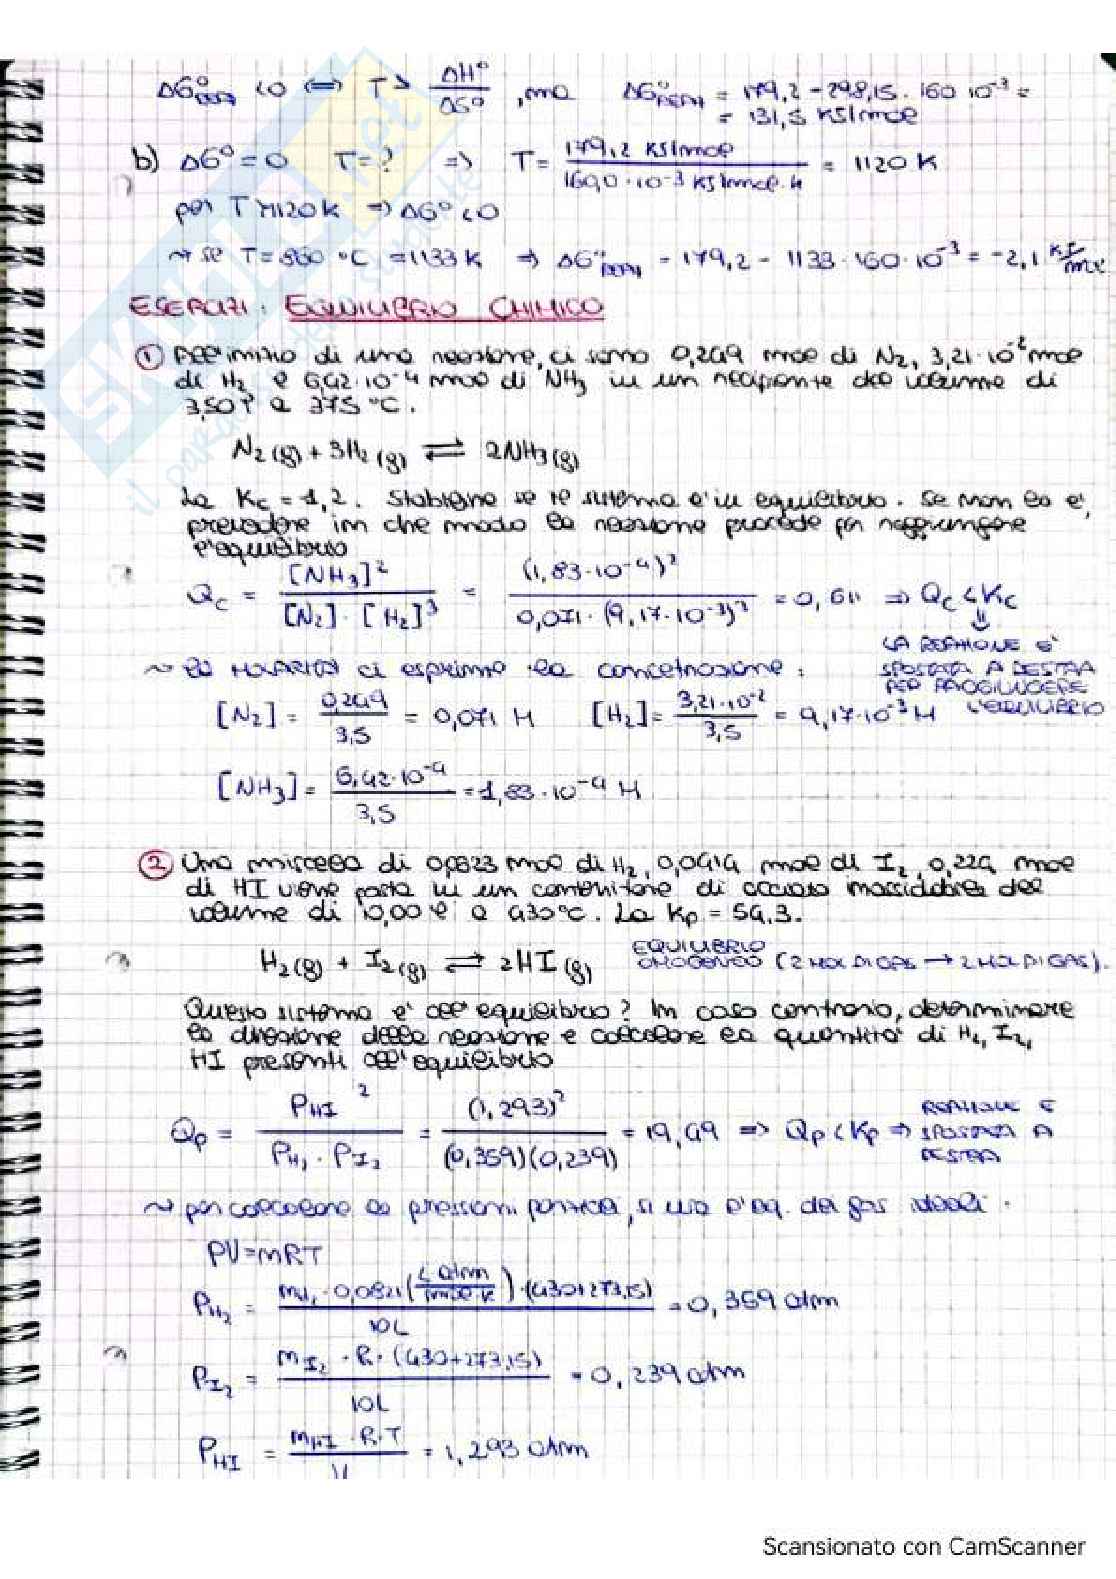 ΔG°reaz <0 ⟺ T > ΔH°/ΔS° , ma ΔG°reaz = 179,2 - 298,15 · 160 10⁻³ =
= 131,5 KJ/mol
b) ΔG° = 0 T = ? ⇒ T = 179,2 KJ/mol / 160,0 · 10⁻³ KJ/mol·K = 1120 K
per T > 1120 K ⇒ ΔG° < 0
~ se T = 860 °C = 1133 K ⇒ ΔG°reaz = 179,2 - 1133 · 160 · 10⁻³ = -2,1 KJ/mol
ESERCIZI: EQUILIBRIO CHIMICO
① All'inizio di una reazione, ci sono 0,249 mol di N₂, 3,21·10⁻² mol
di H₂ e 6,42·10⁻⁴ mol di NH₃ in un recipiente del volume di
3,50 l a 375 °C.
N₂(g) + 3H₂(g) ⇌ 2NH₃(g)
La Kc = 1,2. Stabilire se il sistema è in equilibrio. Se non lo è,
prevedere in che modo la reazione procede per raggiungere
l'equilibrio
Qc = [NH₃]² / [N₂]·[H₂]³ = (1,83·10⁻⁴)² / 0,071·(9,17·10⁻³)³ = 0,611 ⇒ Qc < Kc
⇓
LA REAZIONE E'
SPOSTATA A DESTRA
PER RAGGIUNGERE
L'EQUILIBRIO
~ la MOLARITÀ ci esprime la concentrazione:
[N₂] = 0,249 / 3,5 = 0,071 M [H₂] = 3,21·10⁻² / 3,5 = 9,17·10⁻³ M
[NH₃] = 6,42·10⁻⁴ / 3,5 = 1,83·10⁻⁴ M
② Una miscela di 0,0623 mol di H₂, 0,0414 mol di I₂, 0,224 mol
di HI viene posta in un contenitore di acciaio inossidabile del
volume di 10,00 l a 430°C. La Kp = 54,3.
H₂(g) + I₂(g) ⇌ 2HI(g) EQUILIBRIO
OMOGENEO (2 MOL DI GAS → 2 MOL DI GAS).
Questo sistema è all'equilibrio? In caso contrario, determinare
la direzione della reazione e calcolare la quantità di H₂, I₂,
HI presenti all'equilibrio
Qp = P_HI² / P_H₂ · P_I₂ = (1,293)² / (0,359)(0,239) = 19,49 ⇒ Qp < Kp ⇒ REAZIONE E
SPOSTATA A
DESTRA
~ per calcolare le pressioni parziali, si usa l'eq. dei gas ideali.
PV = nRT
P_H₂ = n_H₂ · 0,0821 (L atm / mol K) · (430+273,15) / 10L = 0,359 atm
P_I₂ = n_I₂ · R · (430+273,15) / 10L = 0,239 atm
P_HI = n_HI · R · T / V = 1,293 atm
Scansionato con CamScanner